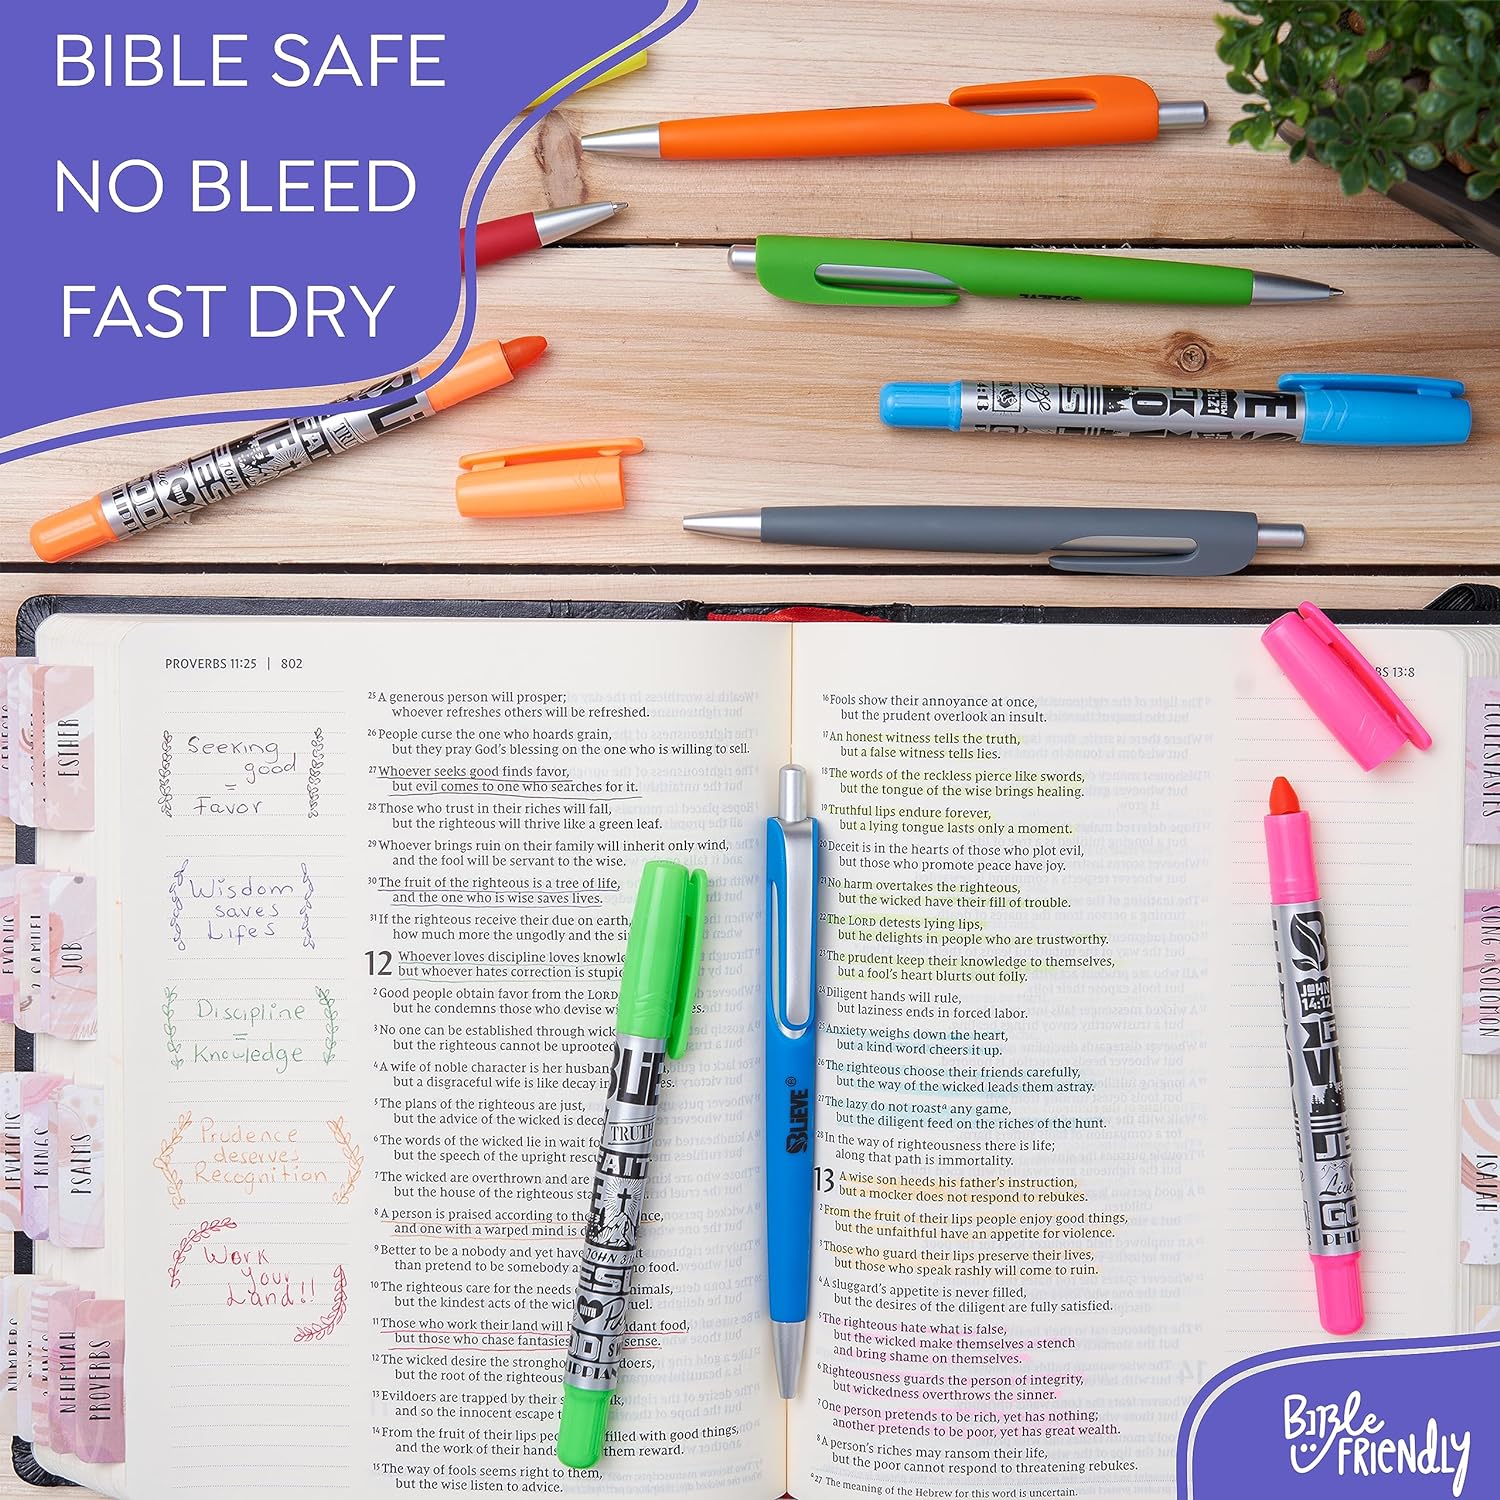 BIBLE SAFE
NO BLEED
FAST DRY
PROVERBS 11:25 | 802
25 A generous person will prosper;
whoever refreshes others will be refreshed.
26 People curse the one who hoards grain,
but they pray God's blessing on the one who is willing to sell.
27 Whoever seeks good finds favor,
but evil comes to one who searches for it.
28 Those who trust in their riches will fall,
but the righteous will thrive like a green leaf.
29 Whoever brings ruin on their family will inherit only wind,
and the fool will be servant to the wise.
30 The fruit of the righteous is a tree of life,
and the one who is wise saves lives.
31 If the righteous receive their due on earth,
how much more the ungodly and the
12 Whoever loves discipline loves
but whoever hates correction is
2 Good people obtain favor from the LORD
but he condemns those who devise
3 No one can be established through
but the righteous cannot be uprooted
4 A wife of noble character is her
but a disgraceful wife is like decay in
5 The plans of the righteous are just,
but the advice of the wicked is
6 The words of the wicked lie in wait
but the speech of the upright
7 The wicked are overthrown and are
but the house of the righteous
8 A person is praised according to
and one with a warped mind is
9 Better to be a nobody and yet have
than pretend to be somebody no food.
10 The righteous care for the needs
but the kindest acts of the
11 Those who work their land will food,
but those who chase fantasies sense.
12 The wicked desire the
but the root of the righteous
13 Evildoers are trapped by their
and so the innocent escape
14 From the fruit of their lips filled with good things,
and the work of their hands them reward.
15 The way of fools seems right to them,
but the wise listen to advice.
Seeking
good
=
Favor
Wisdom
saves
Lifes
Discipline
=
Knowledge
Prudence
deserves
Recognition
Work
Your
Land!!
13:8
16 Fools show their annoyance at once,
but the prudent overlook an insult.
17 An honest witness tells the truth,
but a false witness tells lies.
18 The words of the reckless pierce like swords,
but the tongue of the wise brings healing.
19 Truthful lips endure forever,
but a lying tongue lasts only a moment.
20 Deceit is in the hearts of those who plot evil,
but those who promote peace have joy.
21 No harm overtakes the righteous,
but the wicked have their fill of trouble.
22 The LORD detests lying lips,
but he delights in people who are trustworthy.
23 The prudent keep their knowledge to themselves,
but a fool's heart blurts out folly.
24 Diligent hands will rule,
but laziness ends in forced labor.
25 Anxiety weighs down the heart,
but a kind word cheers it up.
26 The righteous choose their friends carefully,
but the way of the wicked leads them astray.
27 The lazy do not roast a any game,
but the diligent feed on the riches of the hunt.
28 In the way of righteousness there is life;
along that path is immortality.
13 A wise son heeds his father's instruction,
but a mocker does not respond to rebukes.
2 From the fruit of their lips people enjoy good things,
but the unfaithful have an appetite for violence.
3 Those who guard their lips preserve their lives,
but those who speak rashly will come to ruin.
4 A sluggard's appetite is never filled,
but the desires of the diligent are fully satisfied.
5 The righteous hate what is false,
but the wicked make themselves a stench
and bring shame on themselves.
6 Righteousness guards the person of integrity,
but wickedness overthrows the sinner.
7 One person pretends to be rich, yet has nothing;
another pretends to be poor, yet has great wealth.
8 A person's riches may ransom their life,
but the poor cannot respond to threatening rebukes.
a 27 The meaning of the Hebrew for this word is uncertain.
ESTHER
2 SAMUEL
JOB
LEVITICUS
1 KINGS
PSALMS
NUMBERS
2 KINGS
NEHEMIAH
PROVERBS
ECCLESIASTES
SONG OF SOLOMON
ISAIAH
BLIEVE®
JOHN
14:12
TRUTH
BIBLE
FRIENDLY